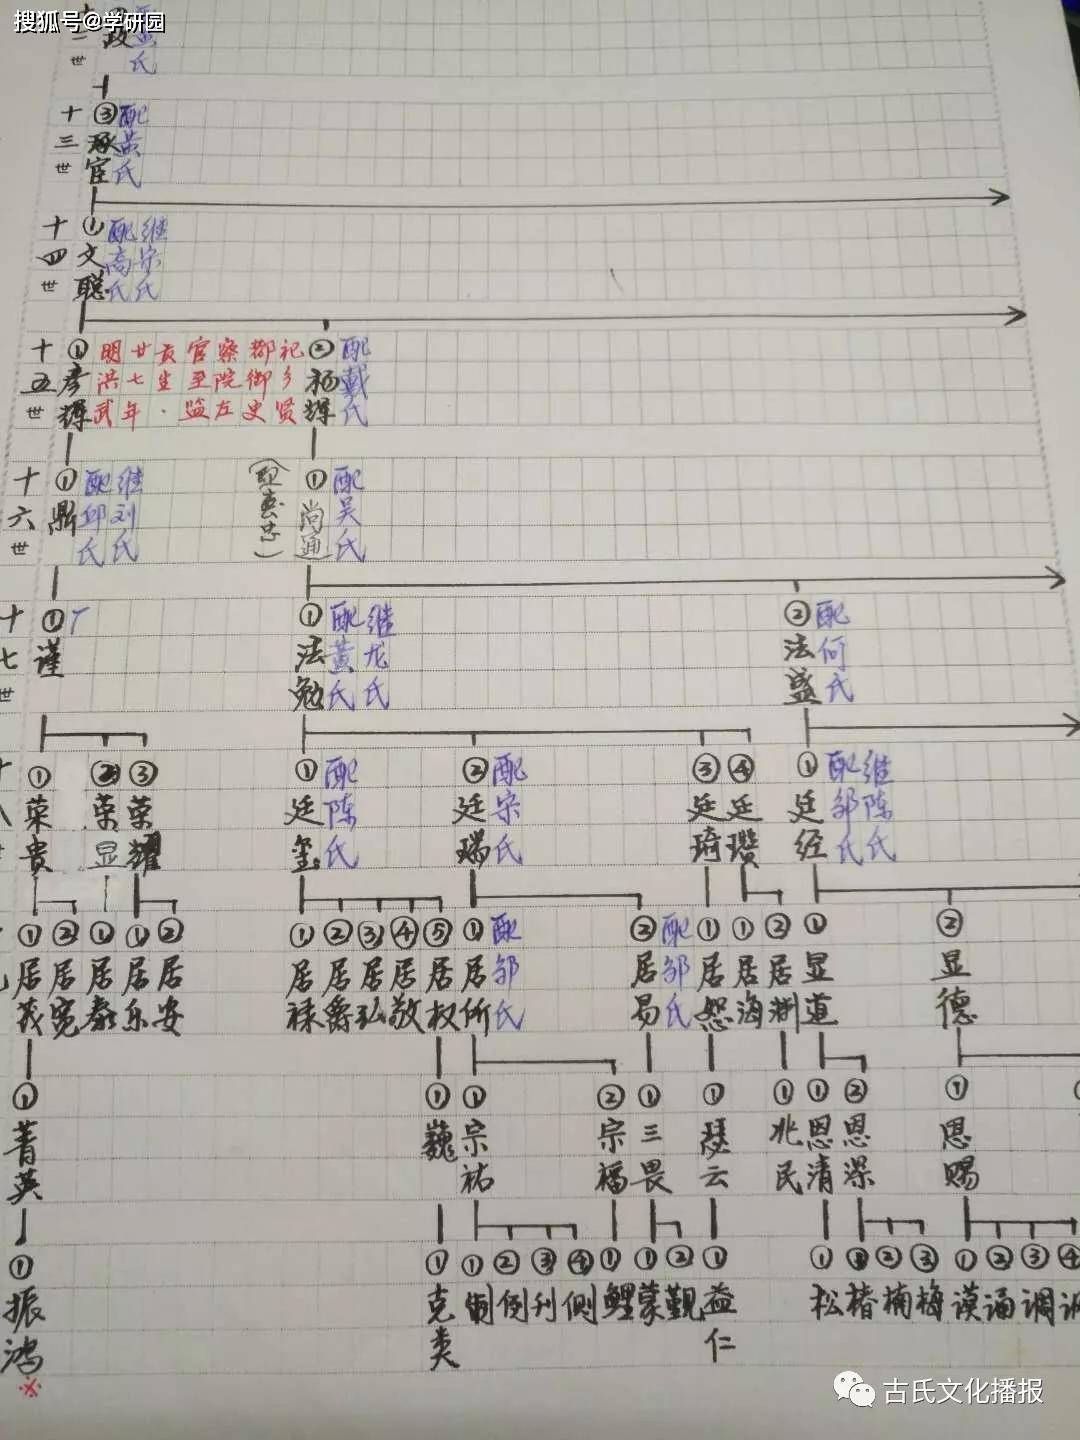 搜狐号@学研园
十二世 政 黄氏
十三世 ③承宦 配黄氏
十四世 ①文聪 配高氏 继宋氏
十五世 ①彦辉 明洪武廿七年贡生·官至监察院左都御史祀乡贤 ②杨辉 配戴氏
十六世 ①鼎 配邱氏 继刘氏 ①尚通 配吴氏
十七世 ①谨 ①法勉 配黄氏 继龙氏 ②法盛 配何氏
十八世 ①荣贵 ②荣显 ③荣耀 ①廷玺 配陈氏 ②廷瑞 配宋氏 ③廷琦 ④廷瓒 ①廷经 配邹氏 继陈氏
①居茂 ②居宽 ①居泰 ①居乐 ②居安 ①居禄 ②居爵 ③居弘 ④居敬 ⑤居权 ①居所 配邹氏 ②居易 配邹氏 ①居恕 ①居海 ②居渊 ①显道 ②显德
①菁英 ①巍 ①宗祐 ②宗福 ①三畏 ①瑟云 ①兆民 ①恩清 ②恩深 ①恩赐
①振鸿 ①克类 ①制 ②例 ③刊 ④侧 ①鲤 ①蒙 ②觐 ①益仁 ①松 ①椿 ②楠 ③梅 ①谟 ②诵 ③调 ④
※
古氏文化播报